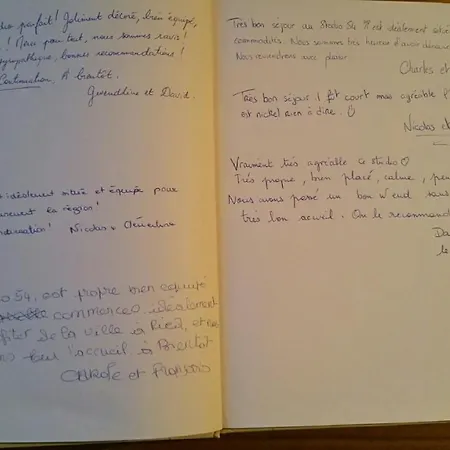 parfait! Joliment décoré, bien équipé,
! Merci pour tout, nous sommes ravis!
sympathique, bonnes recommandations!
Continuation, A bientôt.
Gwendoline et David.
idéalement située et équipé pour
la région!
Nicolas &
54, est propre bien équipé
commerces idéalement
de la ville à Pied, et
l'accueil à Bientôt
CAROLE et François
Très bon séjour au Studio 54 !!! est idéalement
commodités. Nous sommes très heureux d'avoir
Nous reviendrons avec plaisir
Charles et
Très bon séjour ! court mais agréable
est nickel rien à dire.
Nicolas et
Vraiment très agréable ce studio
Très propre, bien placé, calme,
Nous avons passé un bon W end
très bon accueil. On le recommande
Da
le